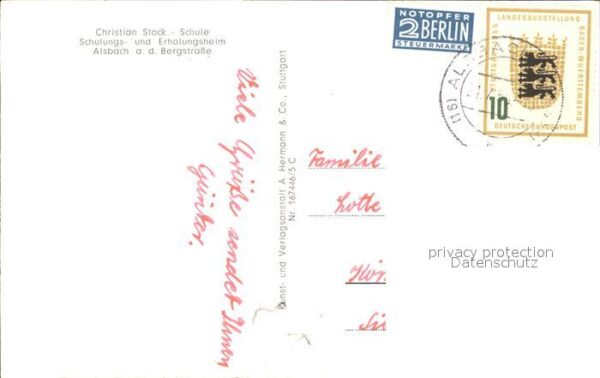 Christian Stock - Schule
Schulungs- und Erholungsheim
Alsbach a. d. Bergstraße
Viele Grüße sendet Ihnen
Günter.
Kunst- und Verlagsanstalt A. Hermann & Co., Stuttgart
Nr. 167446/5 C
NOTOPFER
2 BERLIN
STEUERMARKE
LANDESAUSSTELLUNG
BADEN-WUERTTEMBERG
10
DEUTSCHE BUNDESPOST
(16)
Familie
Lotte
privacy protection
Datenschutz